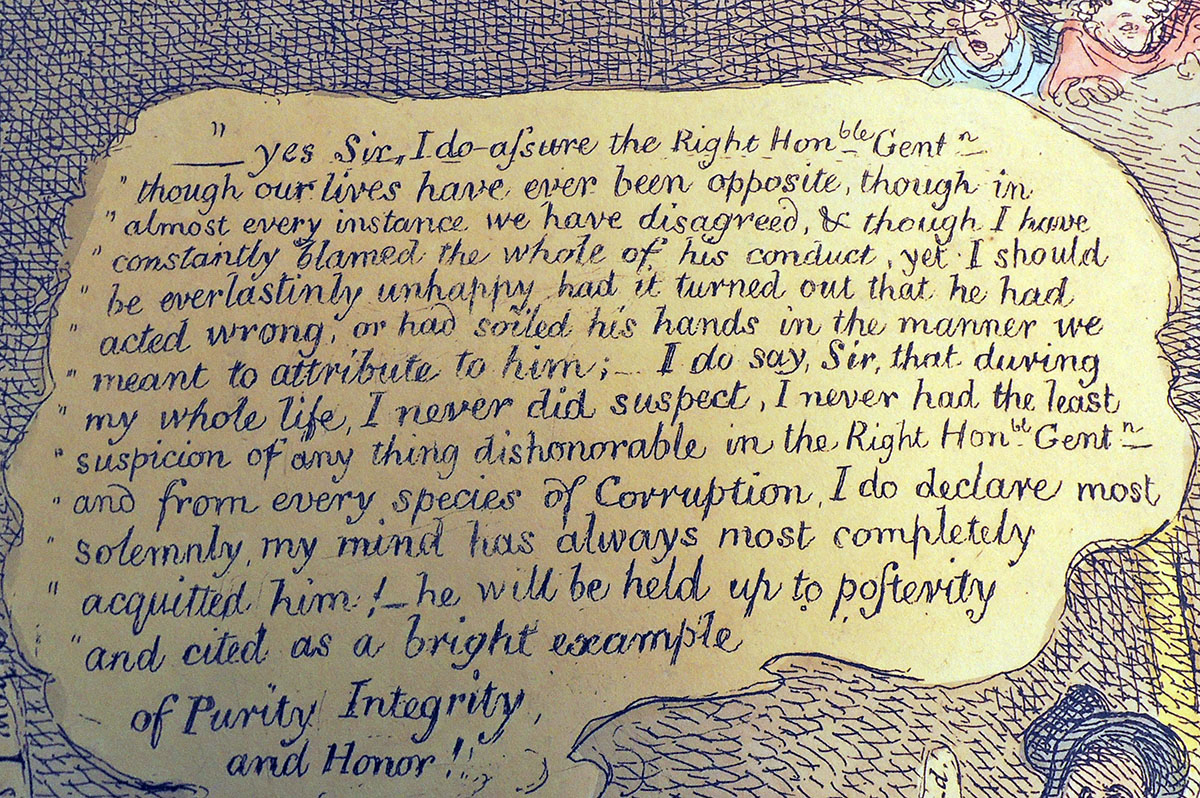 " — yes Sir, I do aſsure the Right Hon.ble Gent.n
" though our lives have ever been opposite, though in
" almost every instance we have disagreed, & though I have
" constantly blamed the whole of his conduct, yet I should
" be everlastinly unhappy had it turned out that he had
" acted wrong, or had soiled his hands in the manner we
" meant to attribute to him; — I do say, Sir, that during
" my whole life, I never did suspect, I never had the least
" suspicion of any thing dishonorable in the Right Hon.bl Gent.n —
" and from every species of Corruption, I do declare most
" solemnly, my mind has always most completely
" acquitted him! — he will be held up to poſterity
" and cited as a bright example
of Purity Integrity,
and Honor!"